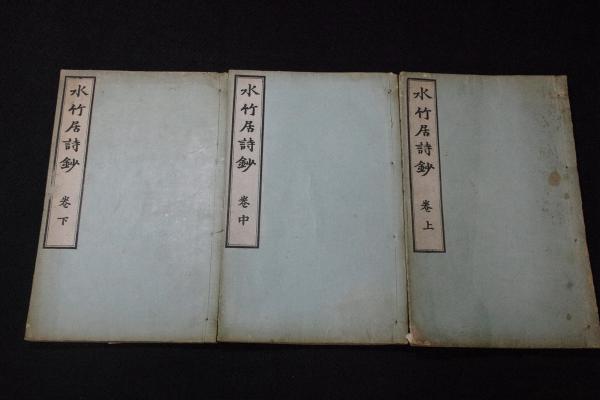 水竹居詩鈔 卷上
水竹居詩鈔 卷中
水竹居詩鈔 卷下